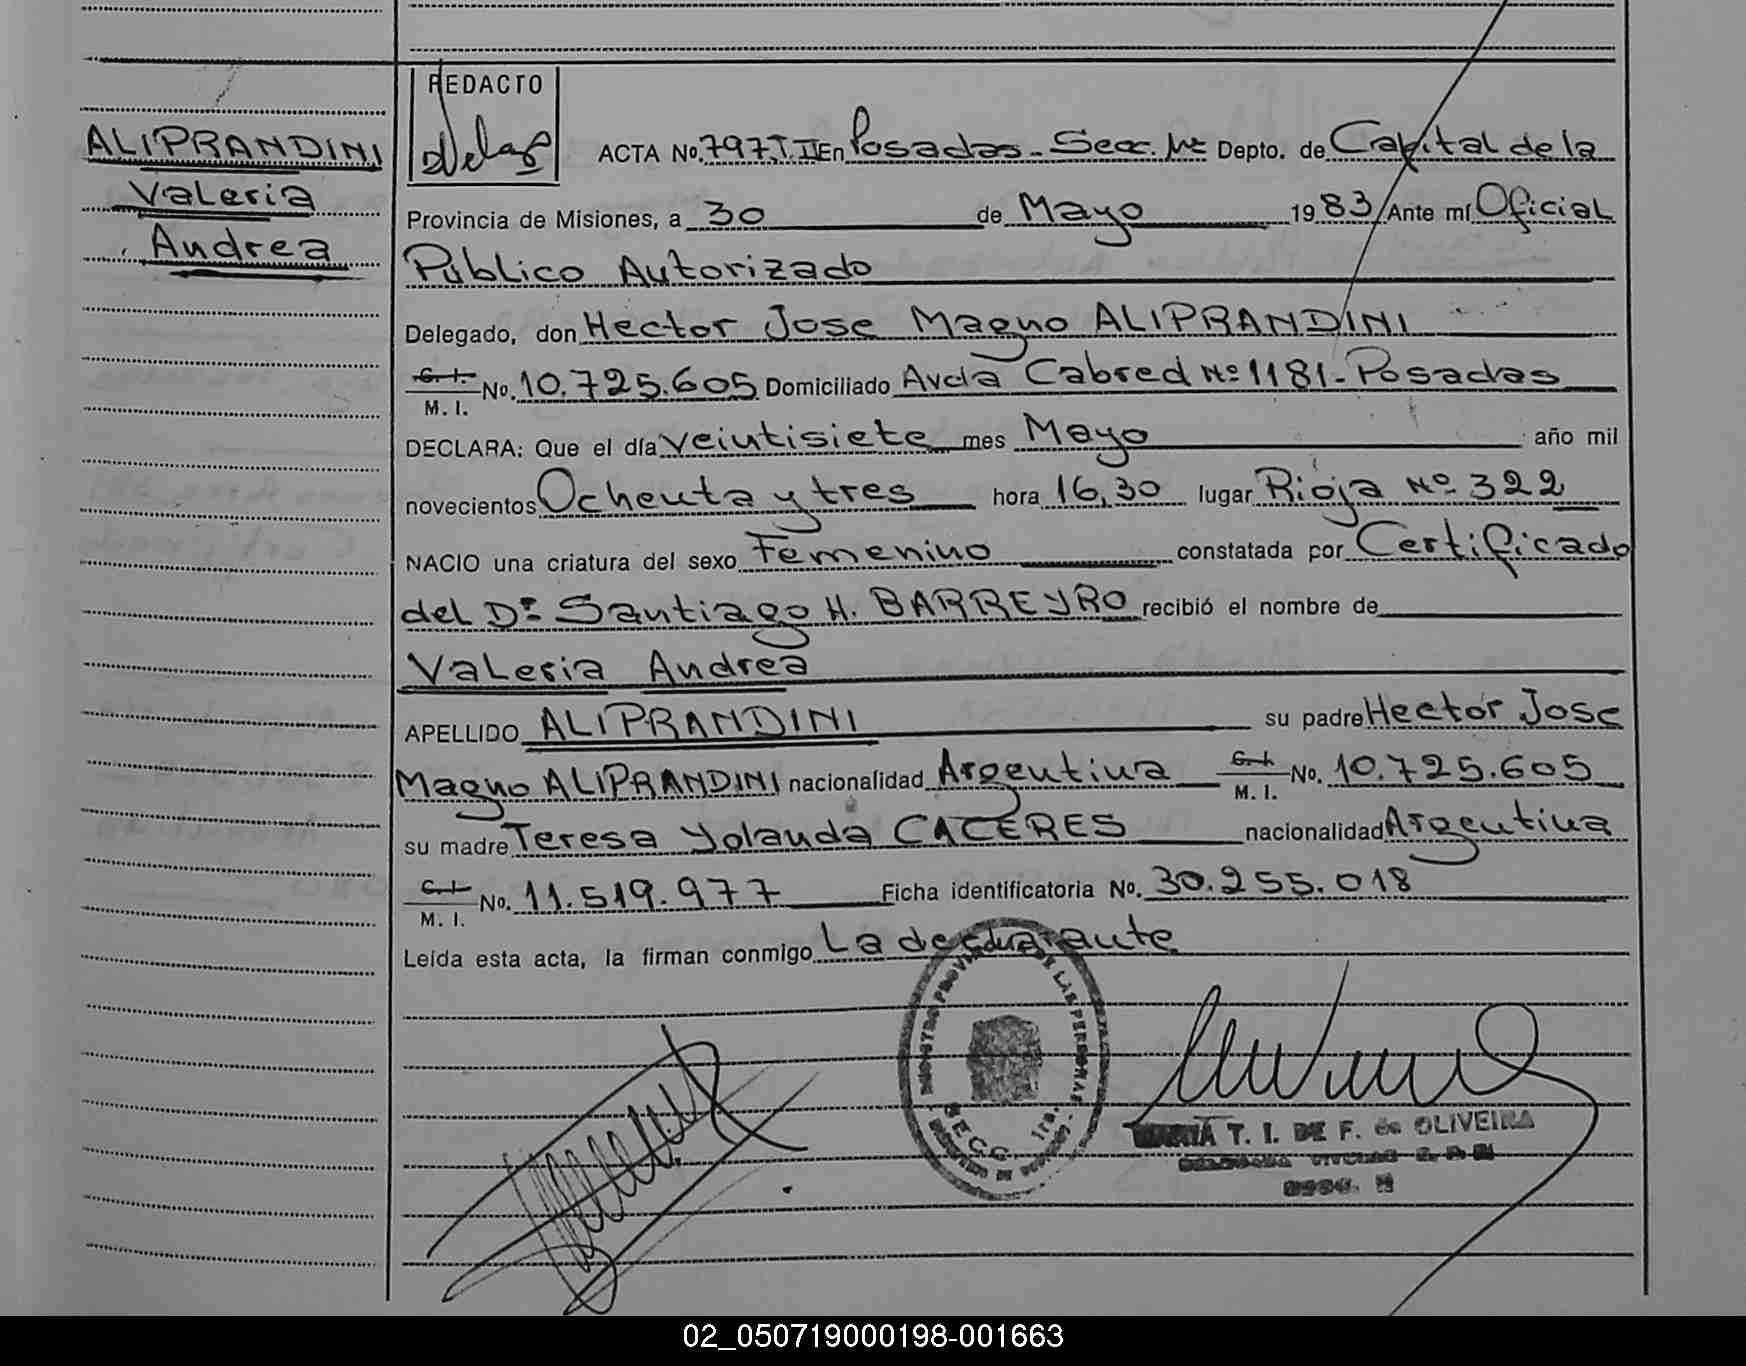 ALIPRANDINI
Valeria
Andrea
REDACTO
ACTA No. 797.T.II En Posadas - Secc. Mc Depto. de Capital de la
Provincia de Misiones, a 30 de Mayo 19 83 Ante mí Oficial
Público Autorizado
Delegado, don Hector Jose Magno ALIPRANDINI
C. I.
M. I. No. 10.725.605 Domiciliado Avda Cabred Nº 1181 - Posadas
DECLARA: Que el día veintisiete mes Mayo año mil
novecientos Ochenta y tres hora 16,30 lugar Rioja Nº 322
NACIO una criatura del sexo Femenino constatada por Certificado
del Dr. Santiago H. BARREYRO recibió el nombre de
Valeria Andrea
APELLIDO ALIPRANDINI su padre Hector Jose
Magno ALIPRANDINI nacionalidad Argentina C. I. M. I. No. 10.725.605
su madre Teresa Yolanda CACERES nacionalidad Argentina
C. I.
M. I. No. 11.519.977 Ficha identificatoria No. 30.255.018
Leída esta acta, la firman conmigo La declarante
REGISTRO PROVINCIAL DE LAS PERSONAS
SECC. 1ra.
MARIA T. I. DE F. de OLIVEIRA
02_050719000198-001663